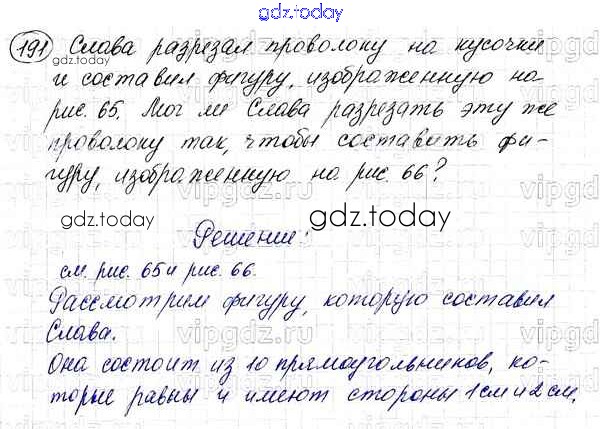 gdz.today
191 Слава разрезал проволоку на кусочки
и составил фигуру, изображенную на
рис. 65. Мог ли Слава разрезать эту же
проволоку так, чтобы составить фи-
гуру, изображенную на рис. 66?
gdz.today gdz.today
Решение:
см. рис. 65 и рис. 66.
Рассмотрим фигуру, которую составил
Слава.
Она состоит из 10 прямоугольников, ко-
торые равны и имеют стороны 1 см и 2 см.